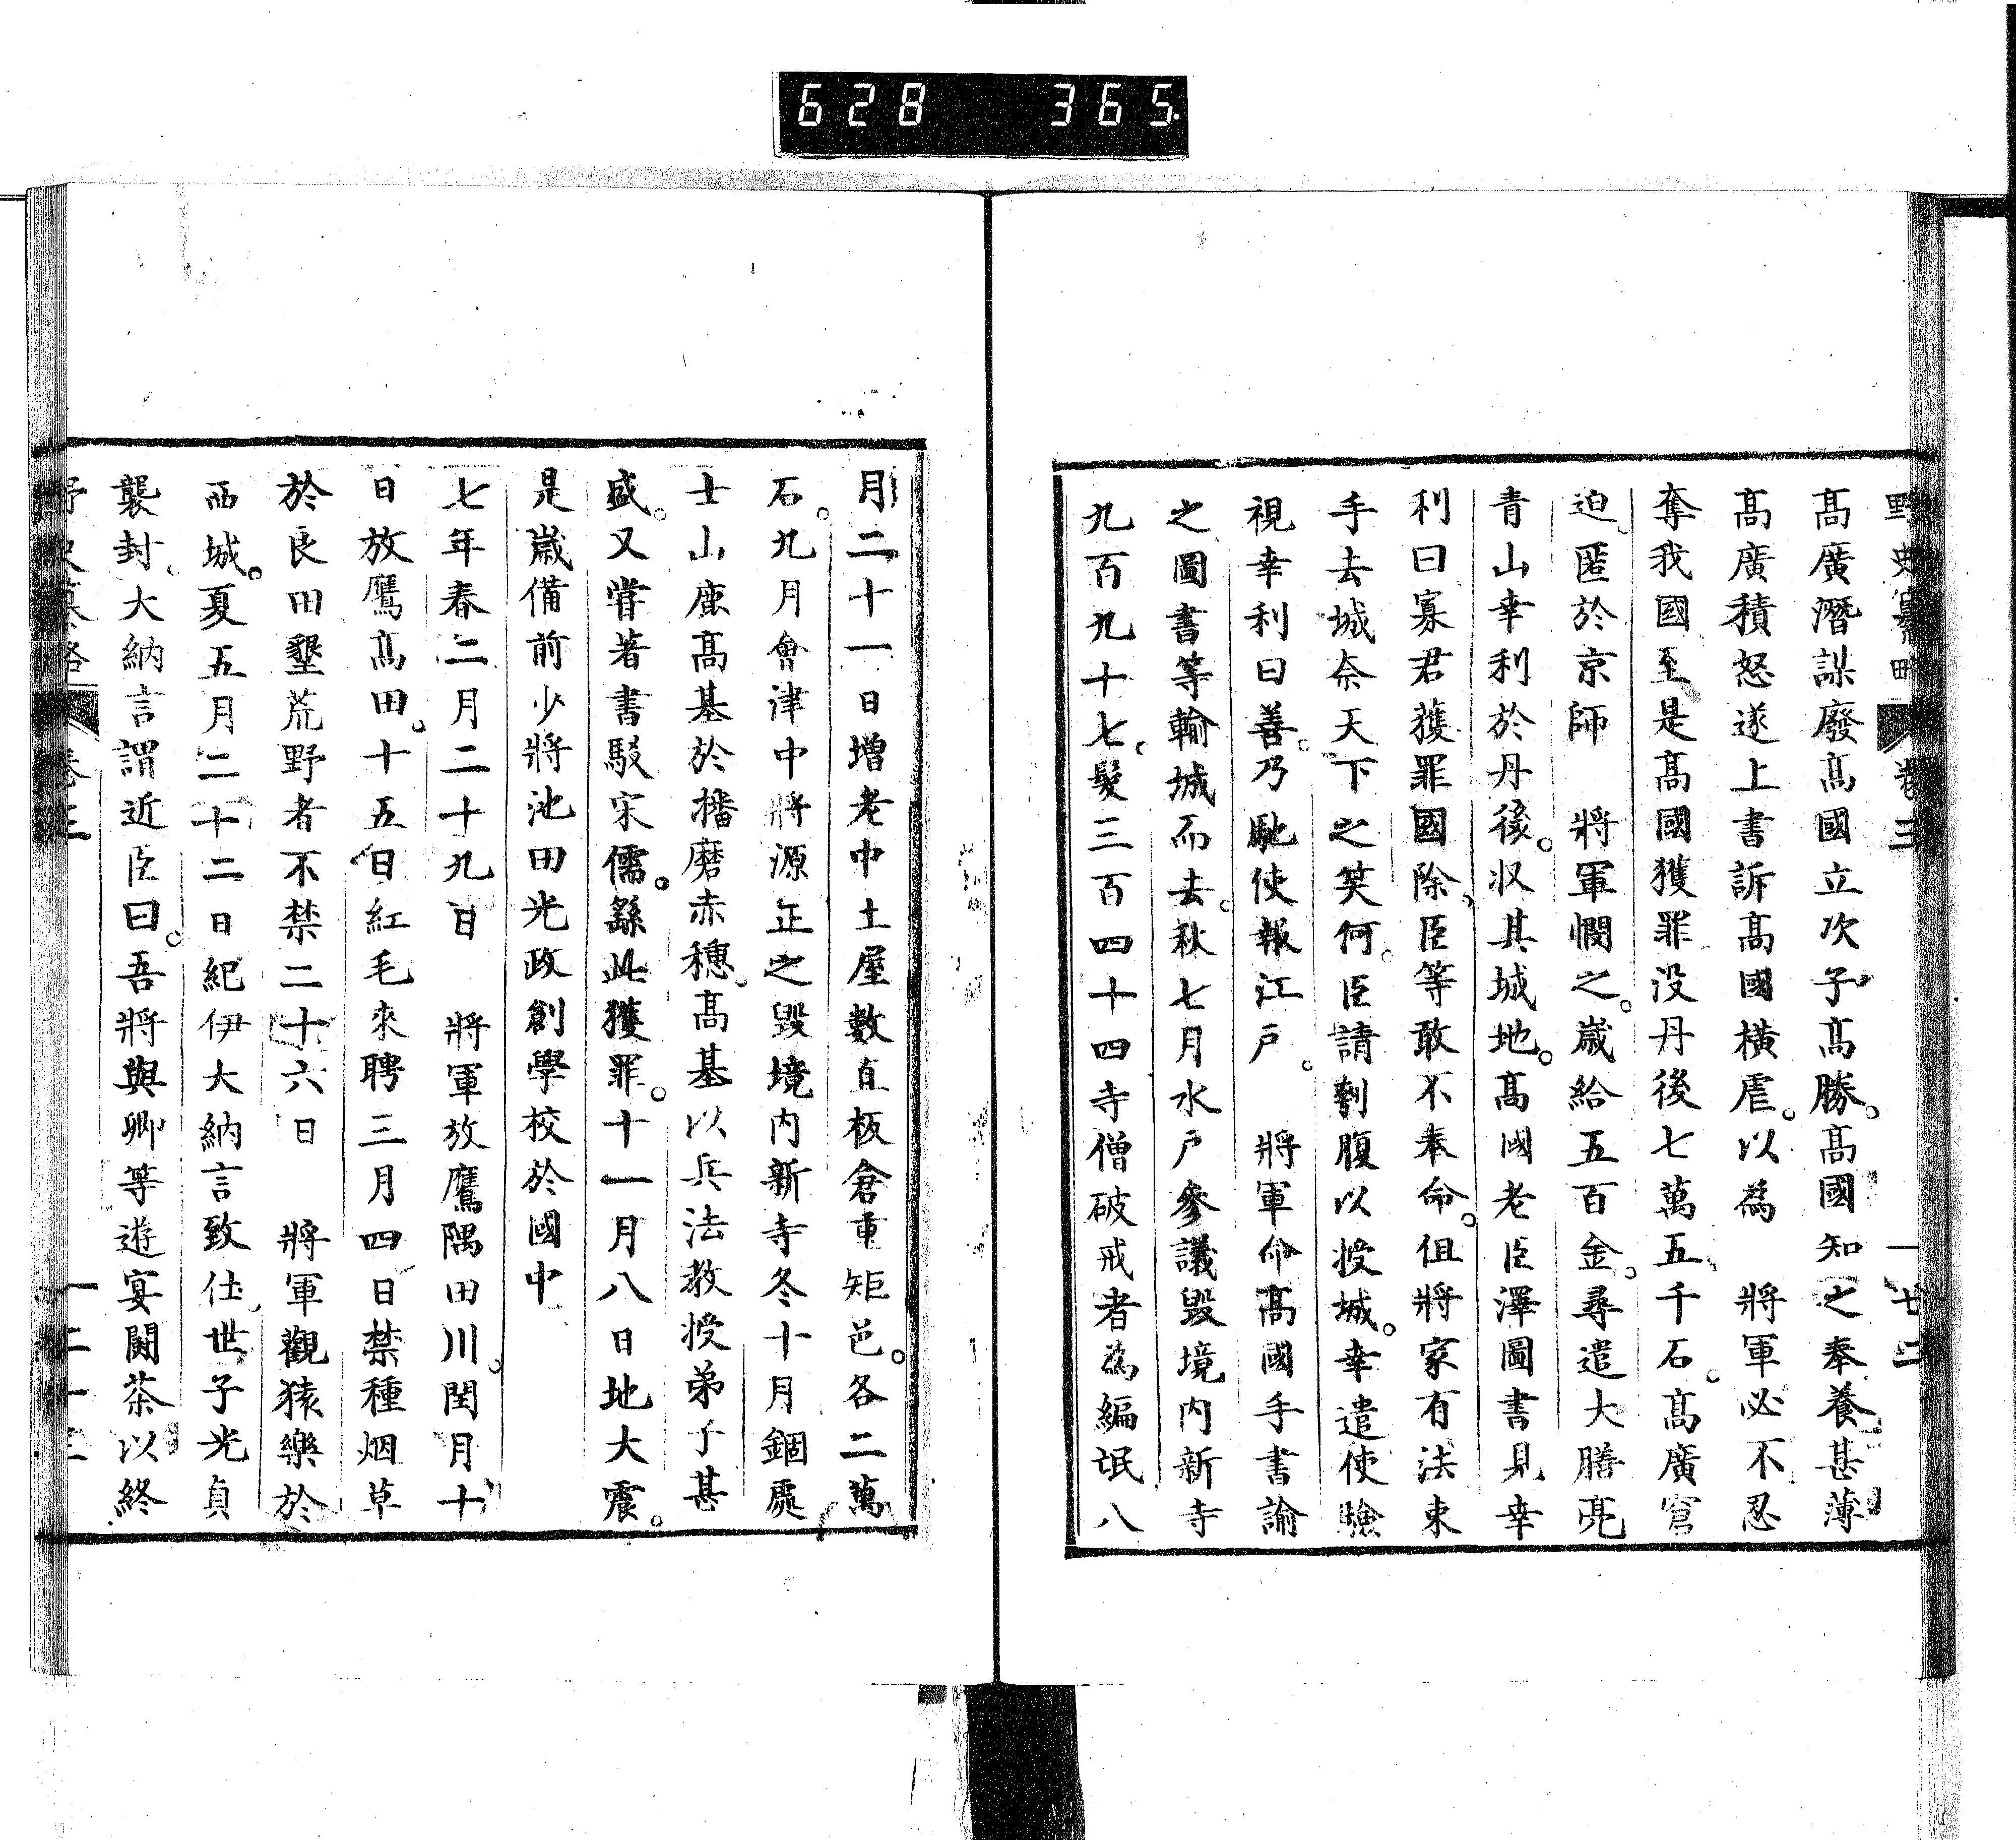 628 365
野史纂略 卷三
髙廣潛謀廢髙國立次子髙勝。髙國知之奉養甚薄
髙廣積怒遂上書訴髙國橫虐。以爲 將軍必不忍
奪我國至是髙國獲罪没丹後七萬五千石。髙廣窘
迫匿於京師 將軍憫之。歲給五百金。尋遣大膳亮
青山幸利於丹後。収其城地。髙國老臣澤圖書見幸
利曰寡君獲罪國除、臣等敢不奉命。伹將家有法束
手去城奈天下之笑何。臣請刳腹以授城。幸遣使驗
視幸利曰善。乃馳使報江戸。 將軍命髙國手書諭
之圖書等輸城而去。秋七月水戸參議毀境内新寺
九百九十七、髮三百四十四寺僧破戒者爲編氓八
月二十一日增老中土屋數直板倉重矩邑。各二萬
石。九月會津中將源正之毀境内新寺冬十月錮處
士山鹿髙基於播磨赤穗。髙基以兵法教授弟子甚
盛。又嘗著書駁宋儒。繇此獲罪。十一月八日地大震。
是歲備前少將池田光政創學校於國中
七年春二月二十九日 將軍放鷹隅田川。閏月十
日放鷹髙田。十五日紅毛來聘三月四日禁種烟草
於良田墾荒野者不禁二十六日 將軍觀猿樂於
西城。夏五月二十二日紀伊大納言致仕。世子光貞
襲封。大納言謂近臣曰。吾將與卿等遊宴鬭茶以終
卷三